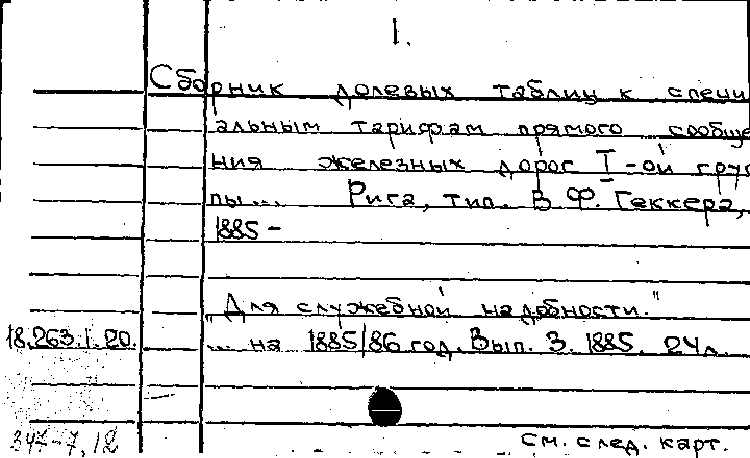 1.
Сборник долевых таблиц к специ
альным тарифам прямого сообще
ния железных дорог I-ой груп
пы... Рига, тип. В. Ф. Геккера,
1885-
"Для служебной надобности."
18.263.1.20. ... на 1885/86 год. Вып. 3. 1885. 24 л.
347-7,12 См. след. карт.